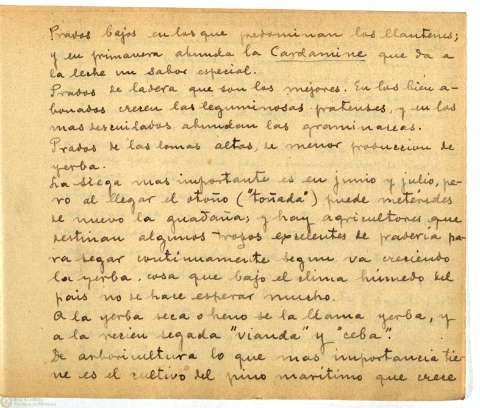 Prados bajos en los que predominan los llantenes;
y en primavera abunda la Cardamine que da a
la leche un sabor especial.
Prados de ladera que son los mejores. En los bien a-
bonados crecen las leguminosas pratenses, y en los
mas descuidados abundan las gramináceas.
Prados de las lomas altas, de menor produccion de
yerba.
La siega mas importante es en junio y julio, pe-
ro al llegar el otoño ("toñada") puede metérseles
de nuevo la guadaña; y hay agricultores que
destinan algunos trozos excelentes de pradería pa-
ra segar continuamente segun va creciendo
la yerba, cosa que bajo el clima húmedo del
pais no se hace esperar mucho.
A la yerba seca o heno se la llama yerba, y
a la recien segada "vianda" y "ceba".
De arboricultura lo que mas importancia tie-
ne es el cultivo del pino marítimo que crece